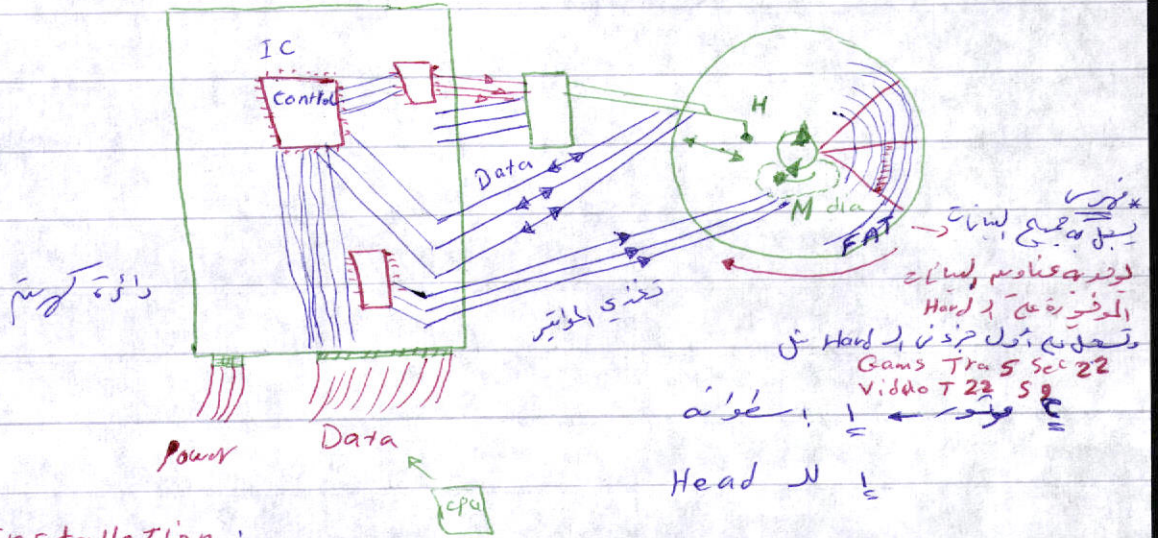 IC
Control
H
Data
M dia
FAT
* فهرس
يسجل به جميع البيانات
يوجد به عناوين البيانات
الموجودة على الـ Hard
وتسجل في أول جزء في الـ Hard مثل
Gams Tra 5 Sec 22
Viddo T 22 S 9
تغذي المواتير
دائرة كهربية
موتور ← 1 اسطوانة
1 للـ Head
Power
Data
cpu